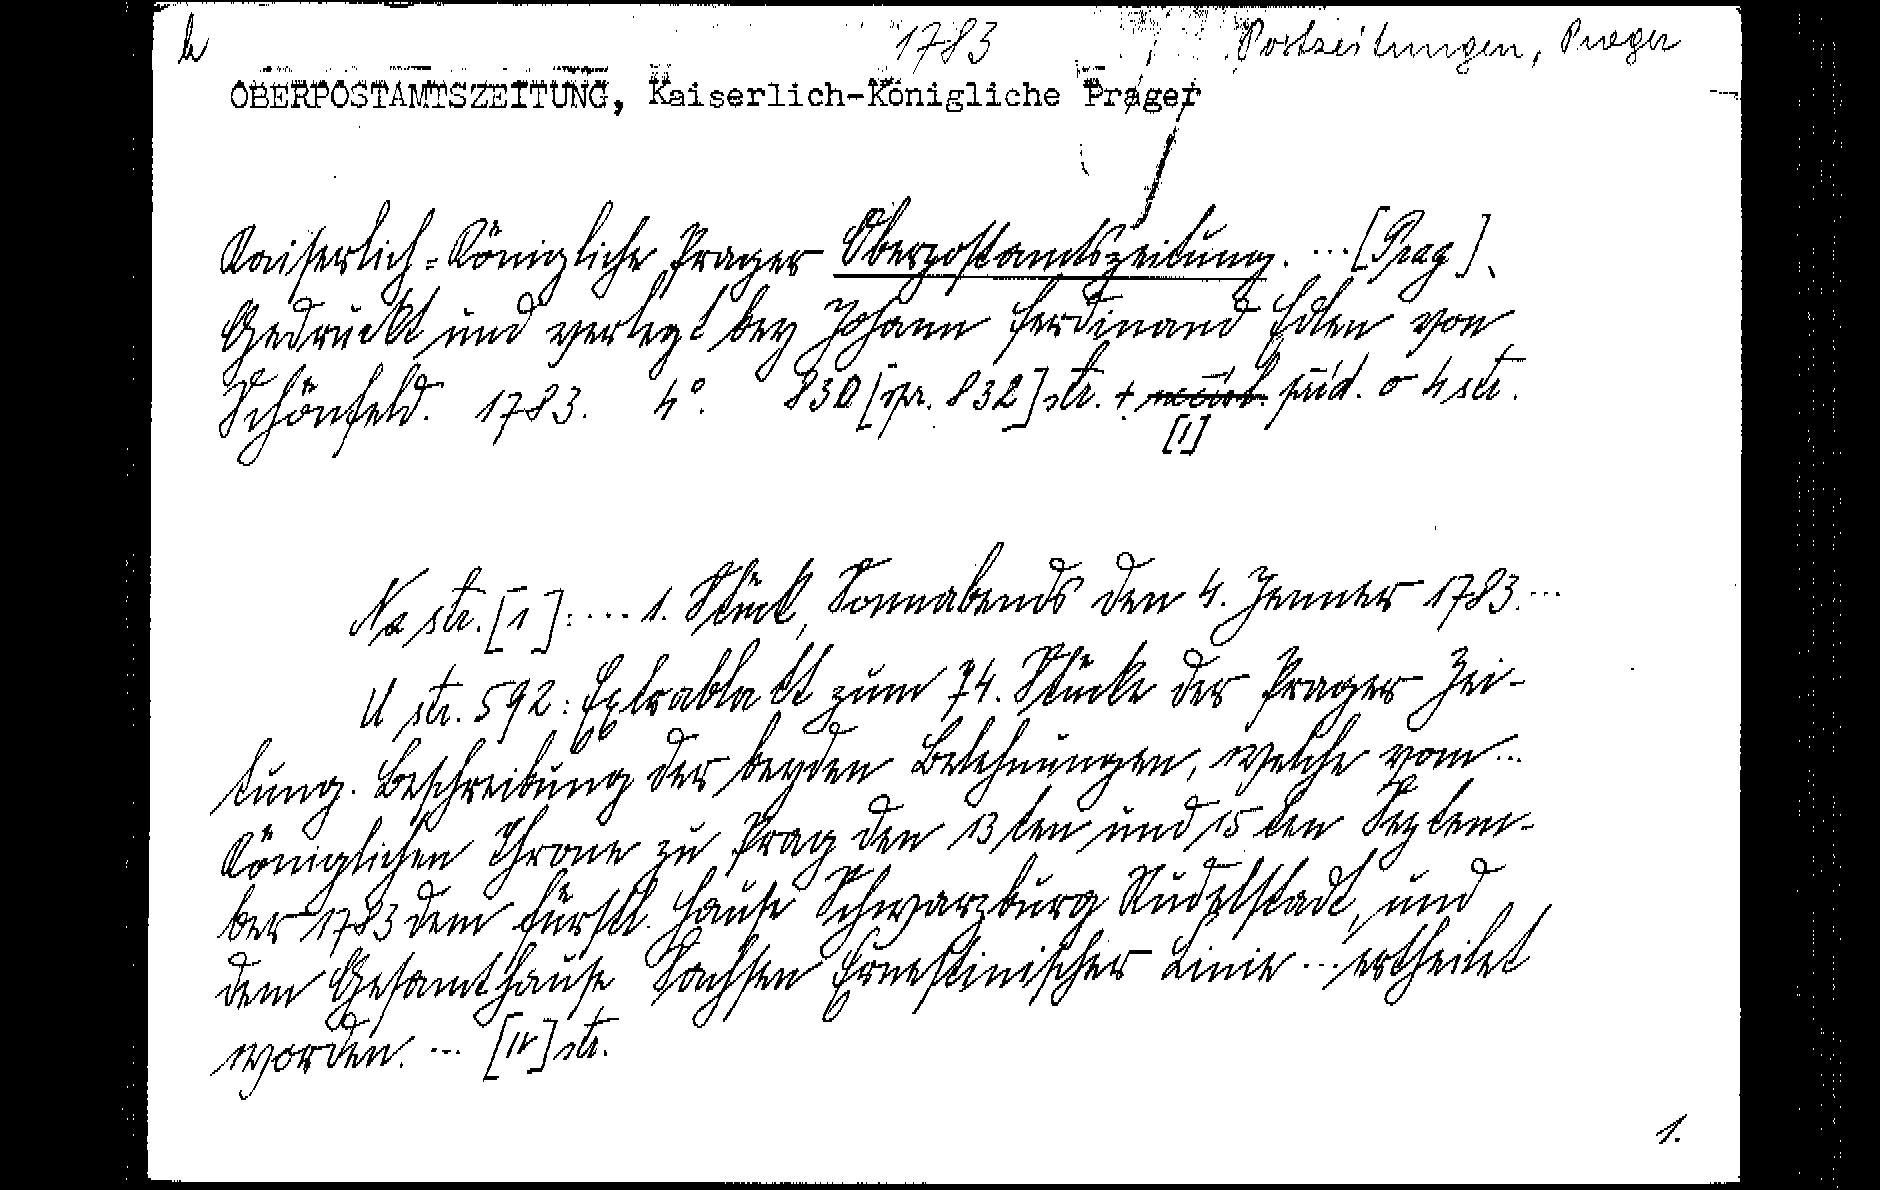 1783 Postzeitungen, Prager
OBERPOSTAMTSZEITUNG, Kaiserlich-Königliche Prager
Kaiserlich=Königliche Prager Oberpostamtszeitung. ... [Prag].
Gedruckt und verlegt bey Johann Ferdinand Edlen von
Schönfeld. 1783. 4°. 830 [spr. 832] str. + příd. o 4 str.
[1]
Na str. [1]: ... 1. Stück, Sonnabends den 4. Jenner 1783. ...
U str. 592: Extrablatt zum 74. Stücke der Prager Zei-
tung. Beschreibung der beyden Belehnungen, welche vom ...
Königlichen Throne zu Prag den 13ten und 15ten Septem-
ber 1783 dem fürstl. Hause Schwarzburg Rudelstadt, und
dem Gesamthause Sachsen Ernestinischer Linie ... ertheilet
worden. ... [IV] str.
1.